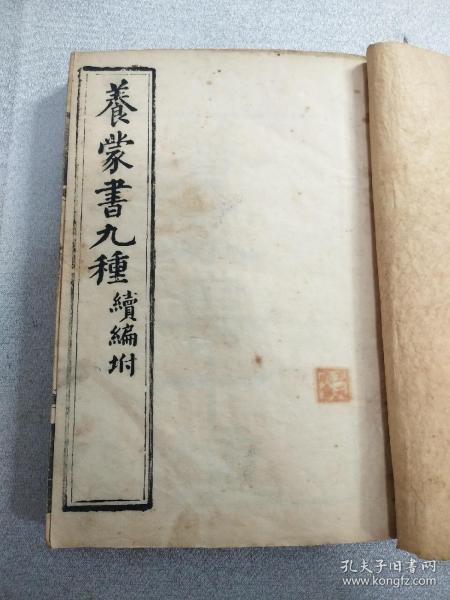 養蒙書九種續編坿
孔夫子旧书网
www.kongfz.com